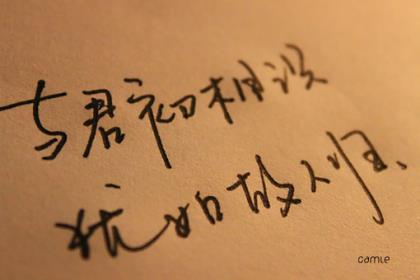 与君初相识
犹如故人归、
camle